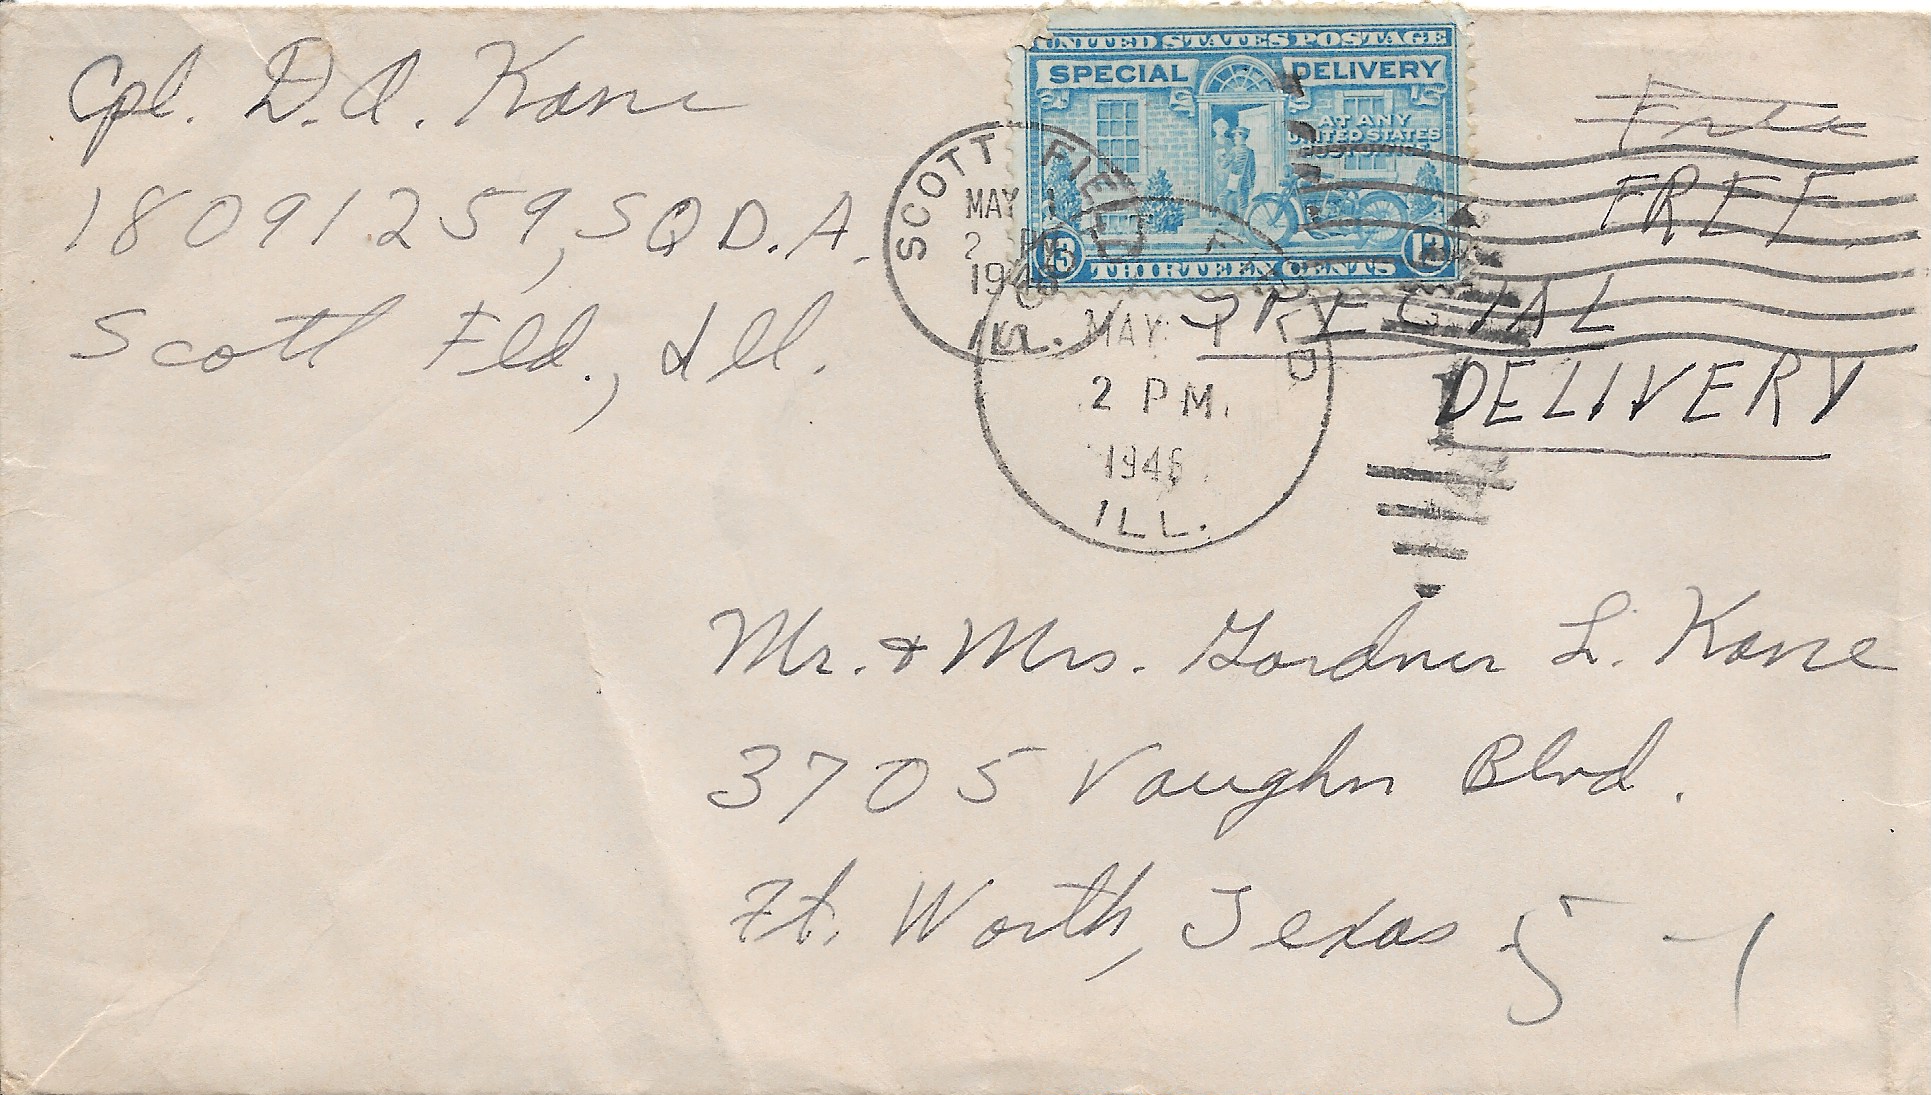 Cpl. D. A. Kane
18091259, SQ D. A.
Scott Fld., Ill.
UNITED STATES POSTAGE
SPECIAL DELIVERY
AT ANY
UNITED STATES
POST OFFICE
13 THIRTEEN CENTS 13
Free
FREE
SPECIAL
DELIVERY
SCOTT FIELD
MAY 1
2 PM
1946
ILL.
SCOTT FIELD
MAY 1
2 PM.
1946
ILL.
Mr. & Mrs. Gardner L. Kane
3705 Vaughn Blvd.
Ft. Worth, Texas 5-1